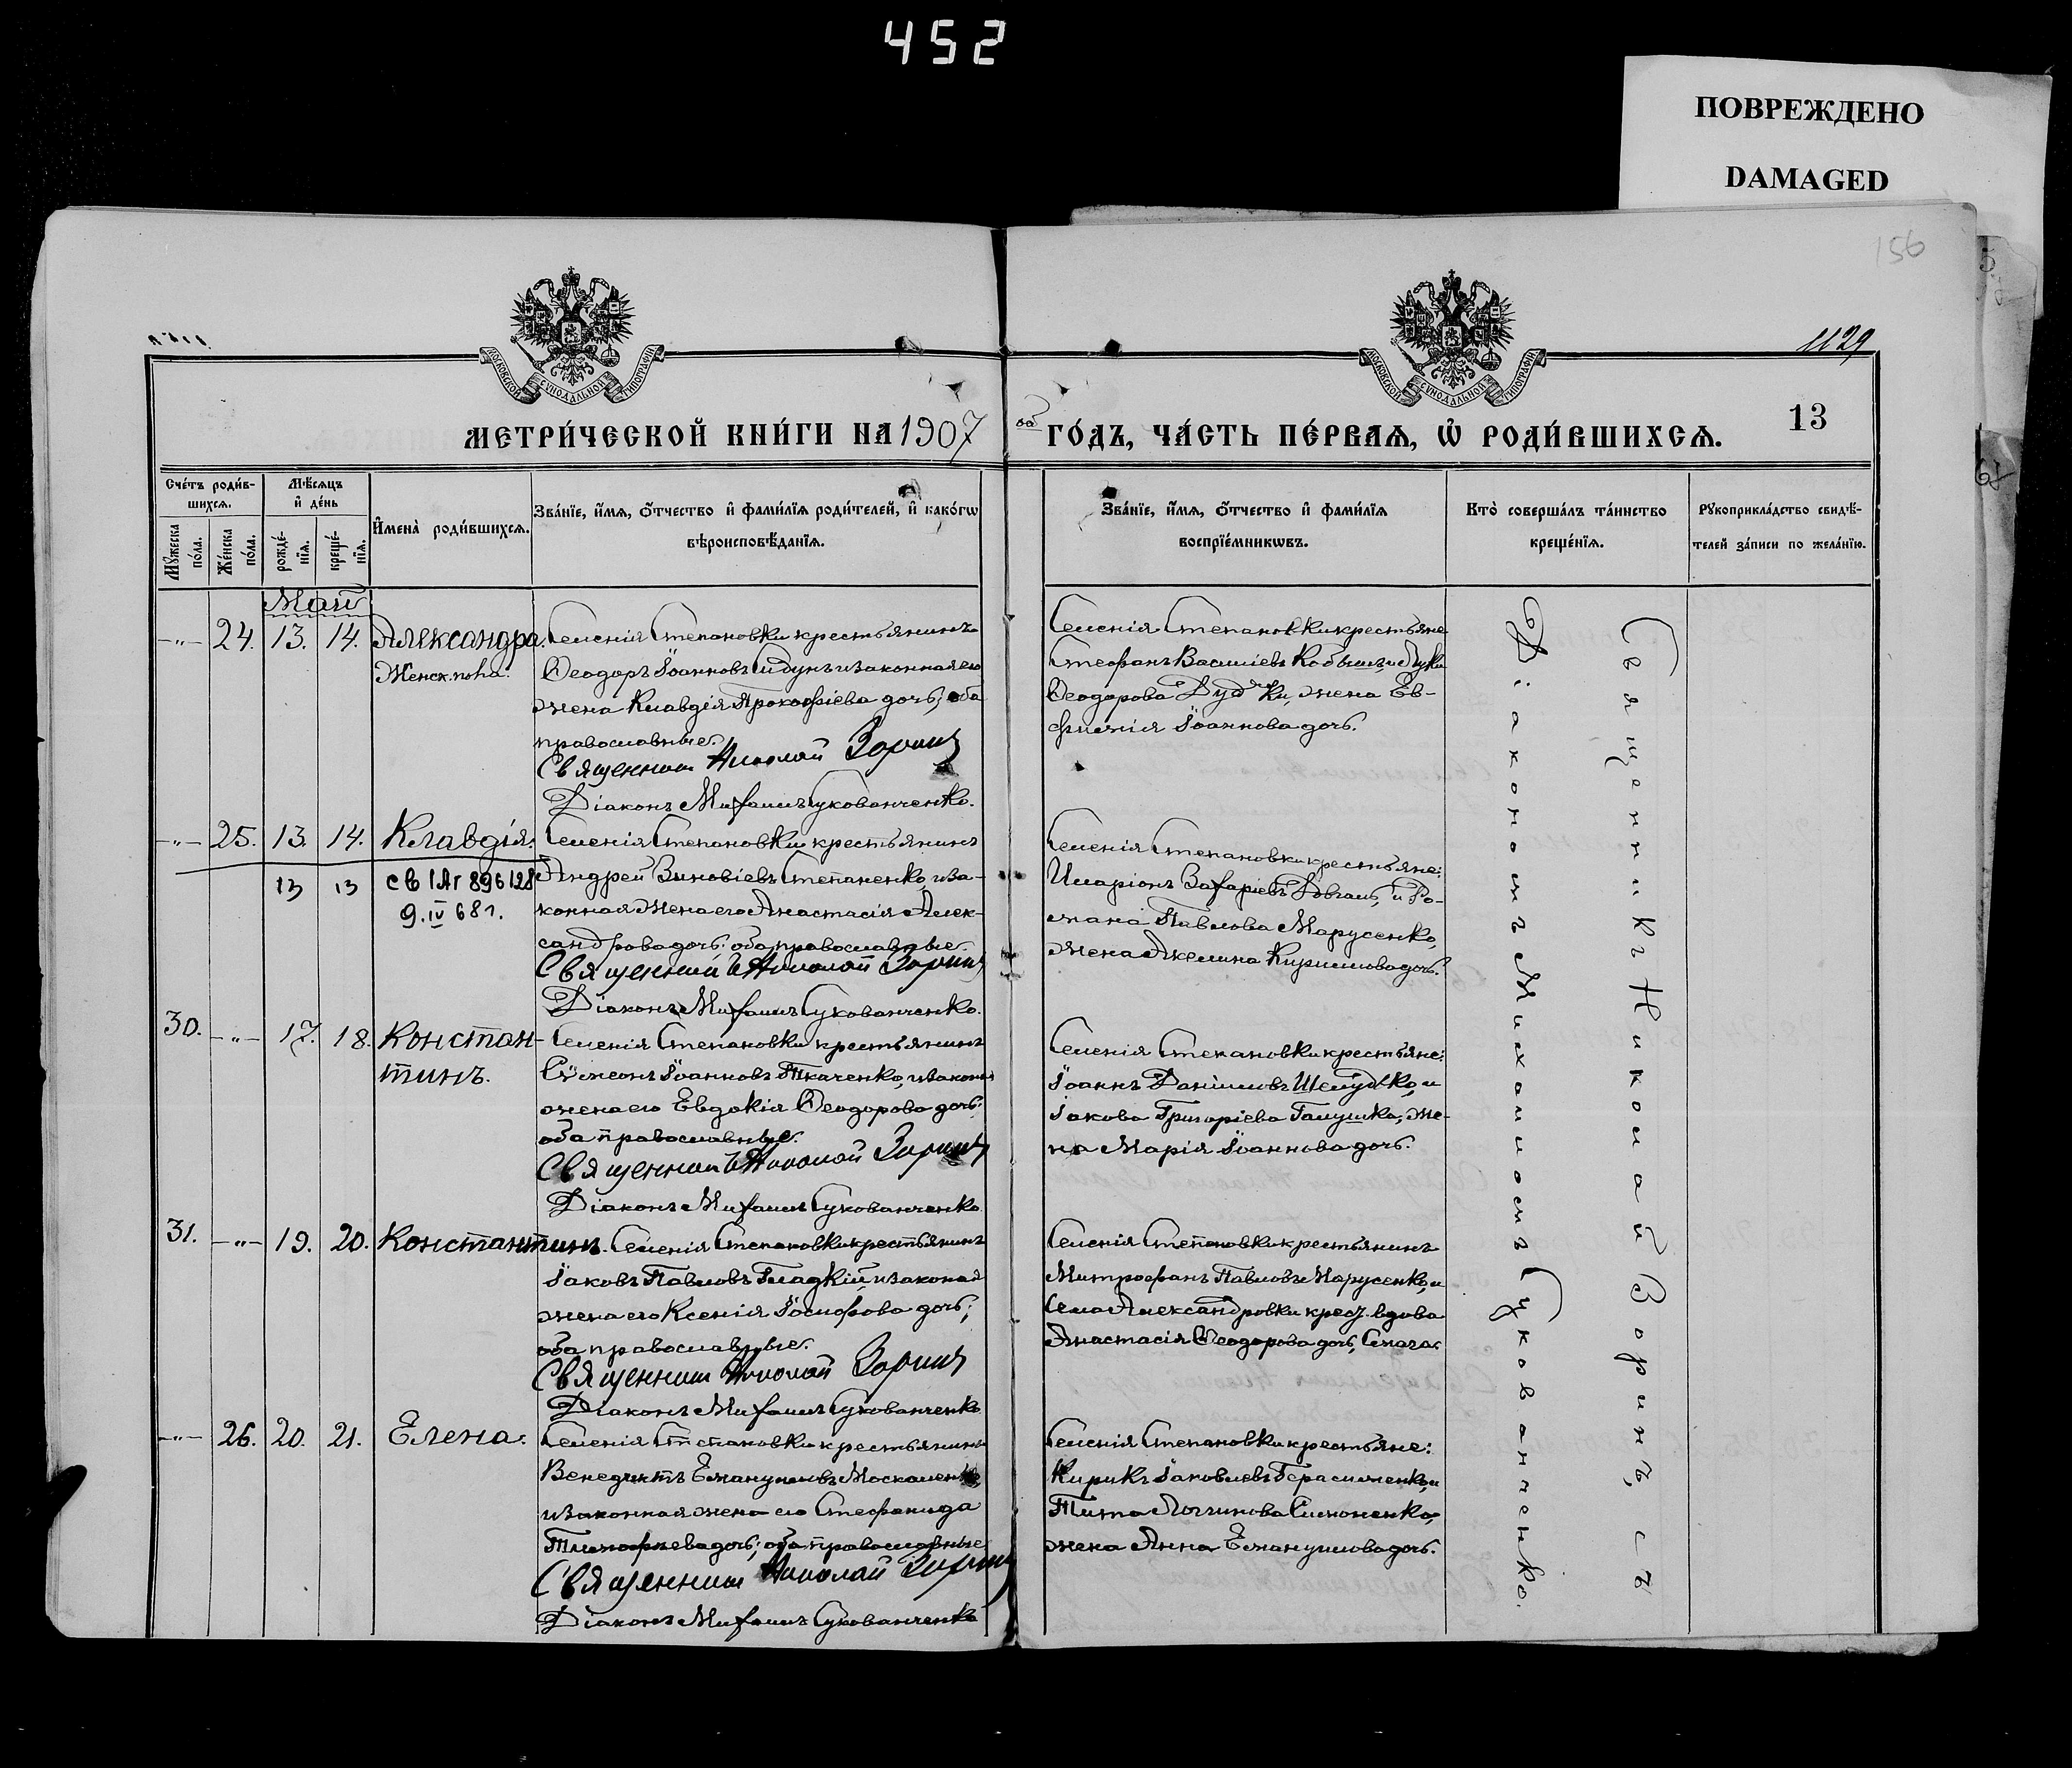 452
ПОВРЕЖДЕНО
DAMAGED
156
1129
МОСКОВСКОЙ СУНОДАЛЬНОЙ ТИПОГРАФІИ
МОСКОВСКОЙ СУНОДАЛЬНОЙ ТИПОГРАФІИ
МЕТРИ́ЧЕСКОЙ КНИ́ГИ НА 1907
ой ГО́ДЪ, ЧА́СТЬ ПЕ́РВАѦ, Ѡ҆ РОДИ́ВШИХСѦ. 13
Сче́тъ роди́в-
шихсѧ.
Мꙋжеска по́ла.
Же́нска по́ла.
Мѣ́сѧцъ
и҆ де́нь
рожде́-
нїѧ.
креще́-
нїѧ.
И҆мена̀ роди́вшихсѧ.
Зва́нїе, и҆́мѧ, ѻ҆́тчество и҆ фами́лїѧ роди́телей, и҆ како́гѡ
вѣроисповѣ́данїѧ.
Зва́нїе, и҆́мѧ, ѻ҆́тчество и҆ фами́лїѧ
воспрїе́мникѡвъ.
Кто̀ соверша́лъ та́инство
креще́нїѧ.
Рꙋкоприкла́дство свидѣ́-
телей за́писи по жела́нїю.
Май
-"- 24. 13. 14. Александра.
Женск. пола.
Селенія Степановки крестьянинъ
Ѳеодоръ Іоанновъ Сидунъ и законная его
жена Клавдія Прокофіева дочь; оба
православные.
Священникъ Николай Зоринъ
Діаконъ Михаилъ Сукованченко.
Селенія Степановки крестьяне
Стефанъ Васильевъ Кобышъ, и Луки
Ѳеодорова Дудки, жена Ев-
фимія Іоаннова дочь.
-"- 25. 13. 14. Клавдія.
13 13 св IАг 896128
9.IV 68г.
Селенія Степановки крестьянинъ
Андрей Зиновіевъ Степаненко, и за-
конная жена его Анастасія Алек-
сандрова дочь; оба православные.
Священникъ Николай Зоринъ
Діаконъ Михаилъ Сукованченко.
Селенія Степановки крестьяне:
Иларіонъ Захаріевъ Довгаль, и Ро-
мана Павлова Марусенко,
жена Акелина Кириллова дочь.
30. -"- 17. 18. Констан-
тинъ.
Селенія Степановки крестьянинъ
Сѵмеонъ Іоанновъ Ткаченко, и законн
жена его Евдокія Ѳеодорова дочь:
оба православные.
Священникъ Николай Зоринъ
Діаконъ Михаилъ Сукованченко
Селенія Степановки крестьяне:
Іоаннъ Даніиловъ Шелудько, и
Іакова Григоріева Галушка, же-
на Марія Іоаннова дочь.
31. -"- 19. 20. Константинъ.
Селенія Степановки крестьянинъ
Іаковъ Павловъ Гладкій, и законая
жена его Ксенія Іосифова дочь;
оба православные.
Священникъ Николай Зоринъ
Діаконъ Михаилъ Сукованченко
Селенія Степановки крестьянинъ
Митрофанъ Павловъ Марусенко, и
села Александровки крест. вдова
Анастасія Ѳеодорова дочь,
-"- 26. 20. 21. Елена.
Селенія Степановки крестьянинъ
Венедиктъ Емануиловъ Москаленко
и законная жена его Стефанида
Тимофеева дочь; оба православные
Священникъ Николай Зоринъ
Діаконъ Михаилъ Сукованченко
Селенія Степановки крестьяне:
Кирикъ Іаковлевъ Герасименко, и
Тита Логгинова Симоненко,
жена Анна Емануилова дочь.
Священникъ Николай Зоринъ, съ
Діакономъ Михаиломъ Сукованченко.